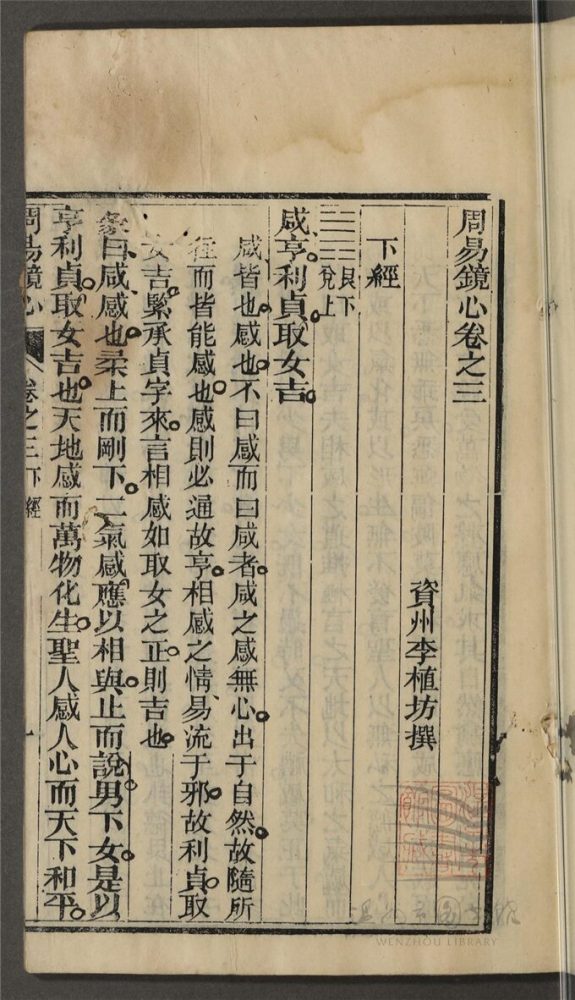 周易鏡心卷之三
資州李植坊撰
下經
艮下
兌上
咸。亨。利貞。取女吉。
咸皆也。感也。不曰感而曰咸者。咸之感無心。出于自然。故隨所
往而皆能感也。感則必通故亨。相感之情。易流于邪。故利貞。取
女吉。緊承貞字來。言相感如取女之正。則吉也。
彖曰。咸。感也。柔上而剛下。二氣感應以相與。止而說。男下女。是以
亨利貞。取女吉也。天地感而萬物化生。聖人感人心而天下和平。
周易鏡心
卷之三 下經
一
WENZHOU LIBRARY